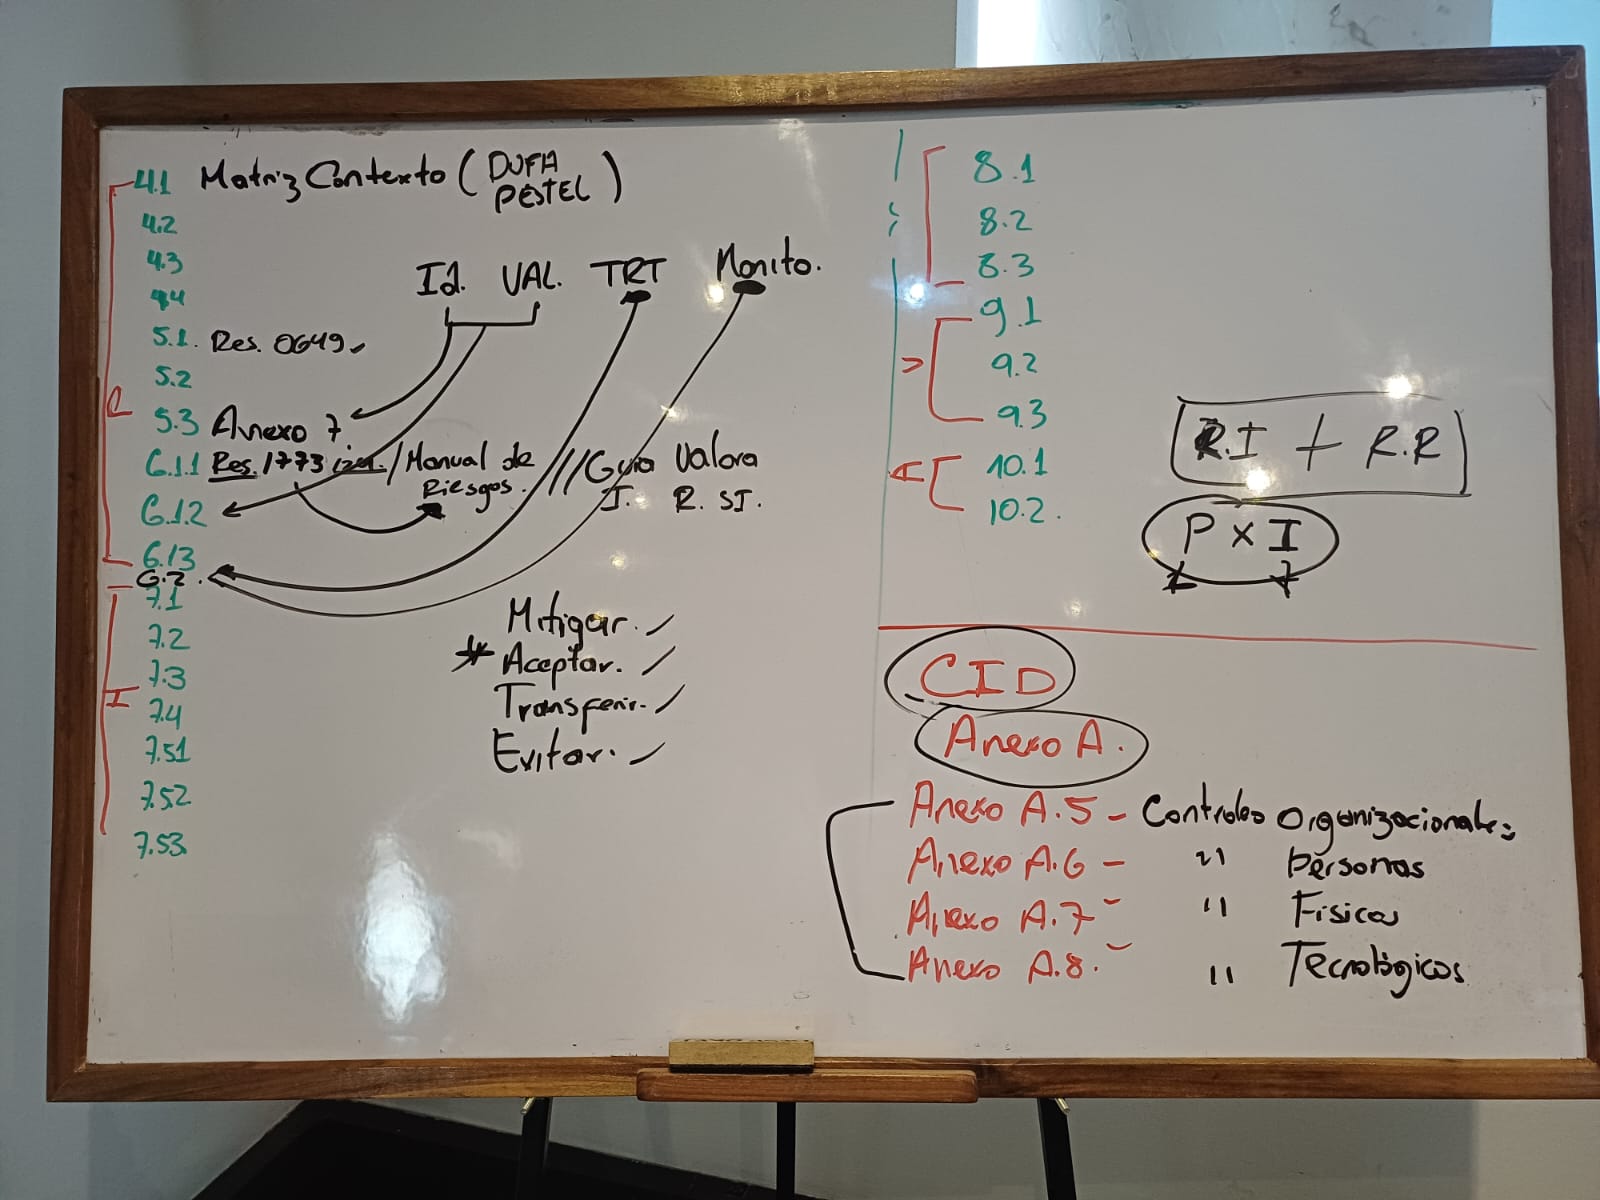 4.1 Matriz Contexto ( DOFA
PESTEL )
4.2
4.3
4.4
Id. VAL. TRT Monito.
5.1. Res. 0649
5.2
P
5.3 Anexo 7
6.1.1 Res. 1773 / Manual de
Riesgos. // Guia Valora
I. R. SI.
6.1.2
6.13
6.2.
7.1
7.2
7.3
I
7.4
7.51
7.52
7.53
Mitigar.
* Aceptar.
Transferir.
Evitar.
8.1
8.2
8.3
9.1
V
9.2
9.3
A
10.1
10.2.
R.I + R.R
P x I
CID
Anexo A.
Anexo A.5 - Controles Organizacionales
Anexo A.6 - " Personas
Anexo A.7 - " Fisicos
Anexo A.8. - " Tecnológicos